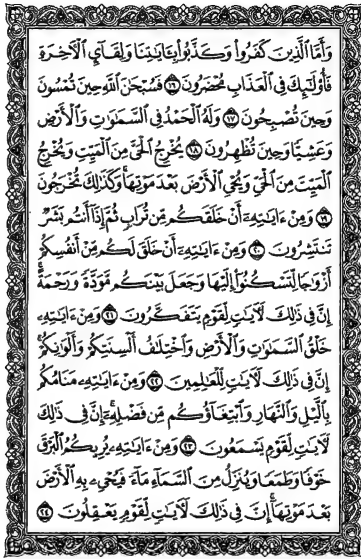 وَأَمَّا ٱلَّذِينَ كَفَرُوا۟ وَكَذَّبُوا۟ بِـَٔايَـٰتِنَا وَلِقَآئِ ٱلْـَٔاخِرَةِ
فَأُو۟لَـٰٓئِكَ فِى ٱلْعَذَابِ مُحْضَرُونَ ١٦ فَسُبْحَـٰنَ ٱللَّهِ حِينَ تُمْسُونَ
وَحِينَ تُصْبِحُونَ ١٧ وَلَهُ ٱلْحَمْدُ فِى ٱلسَّمَـٰوَٰتِ وَٱلْأَرْضِ
وَعَشِيًّا وَحِينَ تُظْهِرُونَ ١٨ يُخْرِجُ ٱلْحَىَّ مِنَ ٱلْمَيِّتِ وَيُخْرِجُ
ٱلْمَيِّتَ مِنَ ٱلْحَىِّ وَيُحْىِ ٱلْأَرْضَ بَعْدَ مَوْتِهَا ۚ وَكَذَٰلِكَ تُخْرَجُونَ
١٩ وَمِنْ ءَايَـٰتِهِۦٓ أَنْ خَلَقَكُم مِّن تُرَابٍ ثُمَّ إِذَآ أَنتُم بَشَرٌ
تَنتَشِرُونَ ٢٠ وَمِنْ ءَايَـٰتِهِۦٓ أَنْ خَلَقَ لَكُم مِّنْ أَنفُسِكُمْ
أَزْوَٰجًا لِّتَسْكُنُوٓا۟ إِلَيْهَا وَجَعَلَ بَيْنَكُم مَّوَدَّةً وَرَحْمَةً ۚ
إِنَّ فِى ذَٰلِكَ لَـَٔايَـٰتٍ لِّقَوْمٍ يَتَفَكَّرُونَ ٢١ وَمِنْ ءَايَـٰتِهِۦ
خَلْقُ ٱلسَّمَـٰوَٰتِ وَٱلْأَرْضِ وَٱخْتِلَـٰفُ أَلْسِنَتِكُمْ وَأَلْوَٰنِكُمْ ۚ
إِنَّ فِى ذَٰلِكَ لَـَٔايَـٰتٍ لِّلْعَـٰلِمِينَ ٢٢ وَمِنْ ءَايَـٰتِهِۦ مَنَامُكُم
بِٱلَّيْلِ وَٱلنَّهَارِ وَٱبْتِغَآؤُكُم مِّن فَضْلِهِۦٓ ۚ إِنَّ فِى ذَٰلِكَ
لَـَٔايَـٰتٍ لِّقَوْمٍ يَسْمَعُونَ ٢٣ وَمِنْ ءَايَـٰتِهِۦ يُرِيكُمُ ٱلْبَرْقَ
خَوْفًا وَطَمَعًا وَيُنَزِّلُ مِنَ ٱلسَّمَآءِ مَآءً فَيُحْىِۦ بِهِ ٱلْأَرْضَ
بَعْدَ مَوْتِهَآ ۚ إِنَّ فِى ذَٰلِكَ لَـَٔايَـٰتٍ لِّقَوْمٍ يَعْقِلُونَ ٢٤